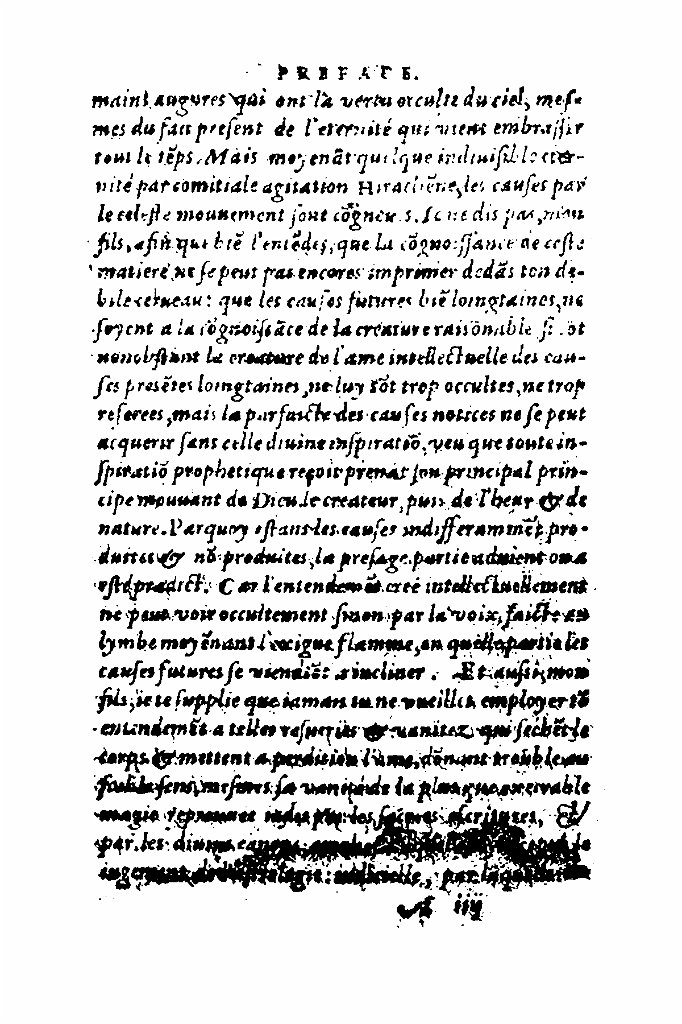 PREFACE.
mains augures qui ont la vertu occulte du ciel, mes-
mes du fait present de l'eternité qui vient embrassir
tout le tẽps. Mais moyenãt quelque indiuisible eter-
nité par comitiale agitation Hirachiẽne, les causes par
le celeste mouuement sont cõgneues. Ie ne dis pas, mon
fils, afin que biẽ l'entẽdes, que la cõgnoissance de ceste
matiere ne se peut pas encores imprimer dedãs ton de-
bile cerueau: que les causes futures biẽ loingtaines, ne
soyent a la cõgnoissãce de la creature raisõnable si sõt
nonobstant la creature de l'ame intellectuelle des cau-
ses presẽtes loingtaines, ne luy sõt trop occultes, ne trop
reserees, mais la parfaicte des causes notices ne se peut
acquerir sans celle diuine inspiratiõ, veu que toute in-
spiratiõ prophetique reçoit prenãt son principal prin-
cipe mouuant de Dieu le createur, puis de l'heur & de
nature. Parquoy estans les causes indifferammẽt pro-
duites & nõ produites, la presage partie aduient ou a
esté predict. Car l'entendemẽt creé intellectuellement
ne peut voir occultement sinon par la voix faicte au
lymbe moyẽnant l'exigue flamme, en quelle partie les
causes futures se viendrõt a incliner. Et aussi mon
fils, ie te supplie que iamais tu ne vueilles employer tõ
entendemẽt a telles resueries & vanitez qui sechẽt le
corps & mettent a perdition l'ame, dõnant trouble au
foible sens, mesmes la vanité de la plus que execrable
magie reprouuee iadis par les sacrees escritures, &
par les diuins canons le
iugement de l'Astrologie iudicielle, par laquelle
A iiij